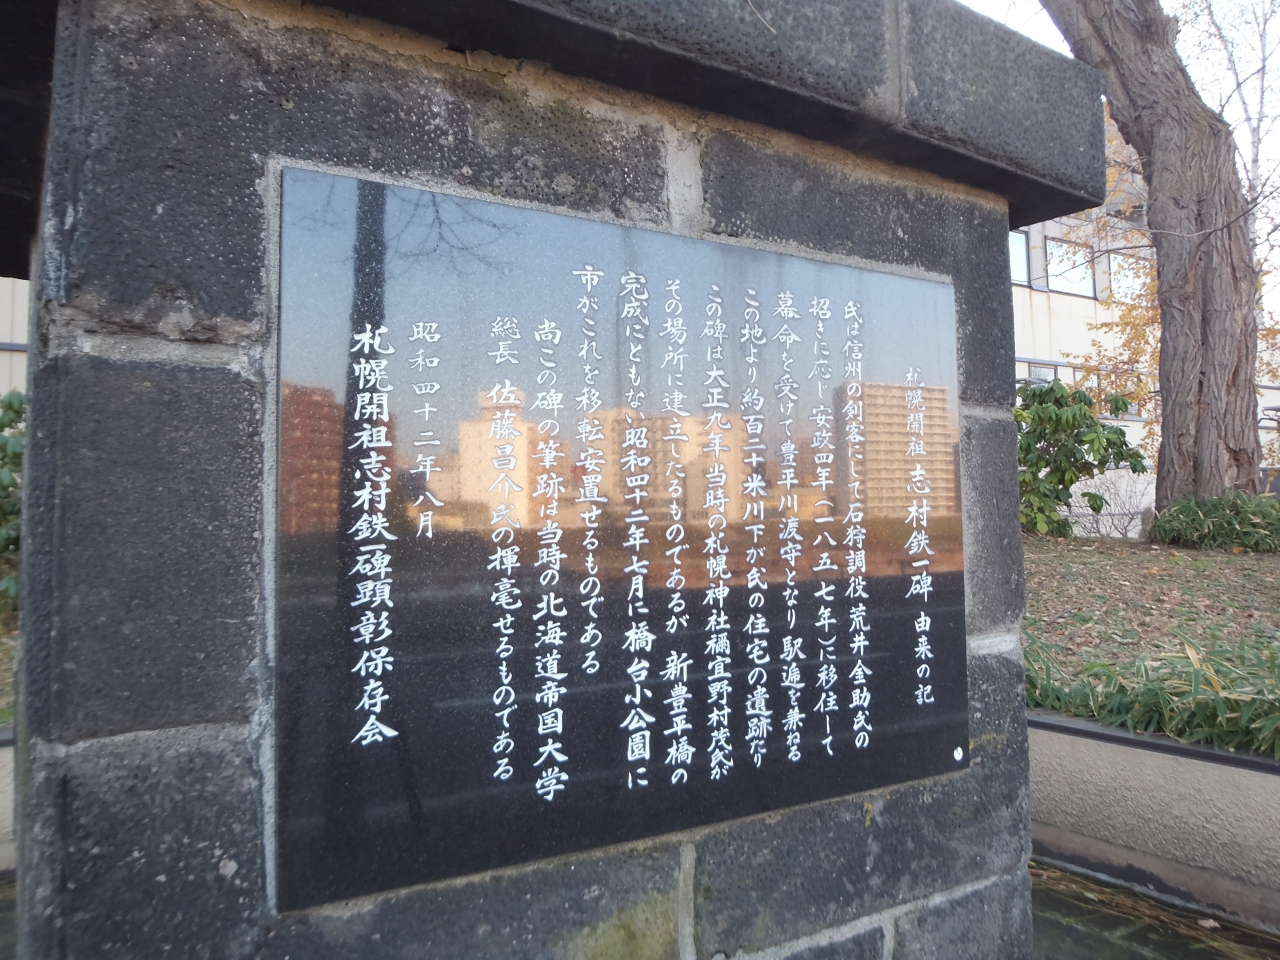 札幌開祖 志村鉄一碑 由来の記
氏は信州の剣客にして石狩調役荒井金助氏の
招きに応じ安政四年(一八五七年)に移住して
幕命を受けて豊平川渡守となり駅逓を兼ねる
この地より約百二十米川下が氏の住宅の遺跡たり
この碑は大正九年当時の札幌神社禰宜野村茂氏が
その場所に建立したるものであるが 新豊平橋の
完成にともない昭和四十二年七月に橋台小公園に
市がこれを移転安置せるものである
尚この碑の筆跡は当時の北海道帝国大学
総長 佐藤昌介氏の揮毫せるものである
昭和四十二年八月
札幌開祖志村鉄一碑顕彰保存会